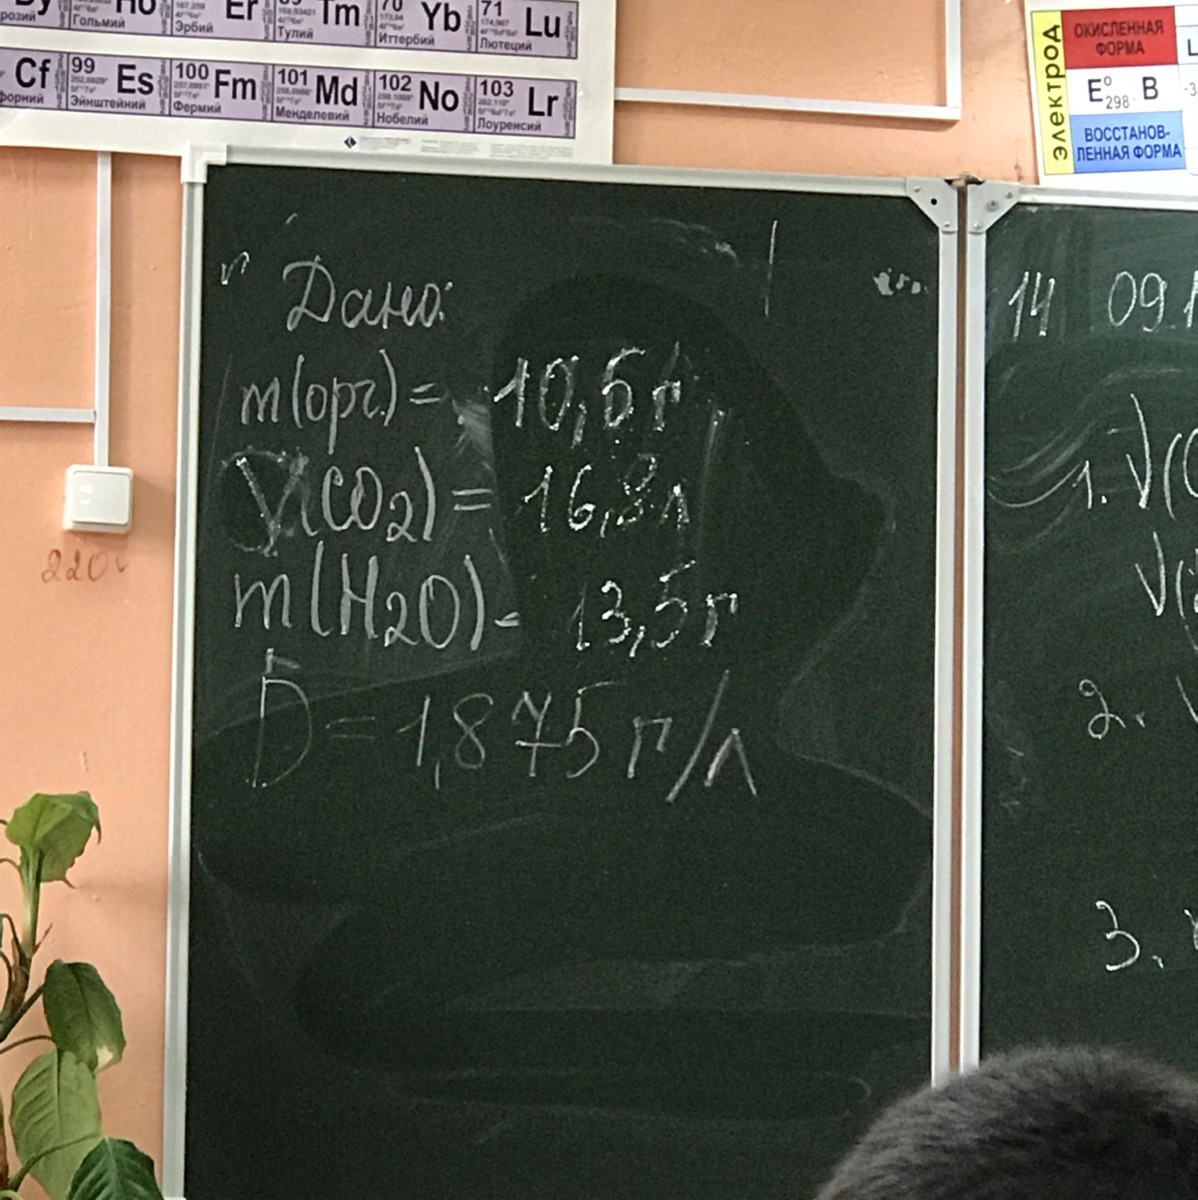 Ho
Er
Tm
70 Yb
71 Lu
Гольмий
Эрбий
Тулий
Иттербий
Лютеций
Cf
99 Es
100 Fm
101 Md
102 No
103 Lr
Эйнштейний
Фермий
Менделевий
Нобелий
Лоуренсий
ЭЛЕКТРОД
ОКИСЛЕННАЯ
ФОРМА
E°298, В
ВОССТАНОВ-
ЛЕННАЯ ФОРМА
220v
Дано:
m(орг.) = 10,5 г
V(CO2) = 16,8 л
m(H2O) - 13,5 г
D = 1,875 г/л
14 09.1
1. V(
V(
2.
3.